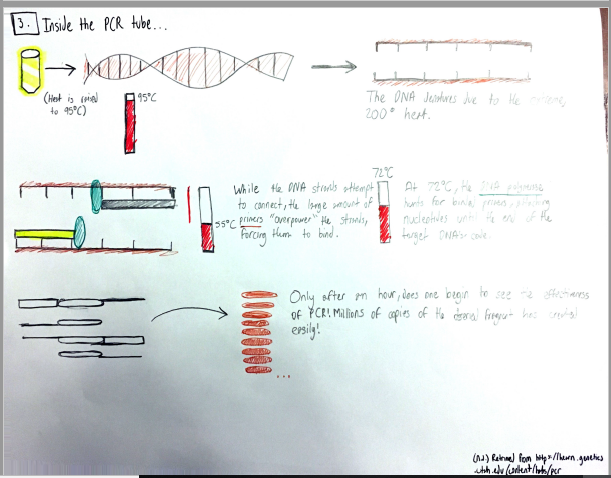 3. Inside the PCR tube...
(Heat is raised
to 95°C)
95°C
The DNA denatures due to the extreme,
200° heat.
55°C
While the DNA strands attempt
to connect, the large amount of
primers "overpower" the strands,
forcing them to bind.
72°C
At 72°C, the DNA polymerase
hunts for primers, attaching
nucleotides until the end of the
target DNA code.
Only after an hour, does one begin to see the effectiveness
of PCR! Millions of copies of the desired fragment has
easily!
...
(n.d.) Retrieved from http://learn.genetics
.utah.edu/content/labs/pcr